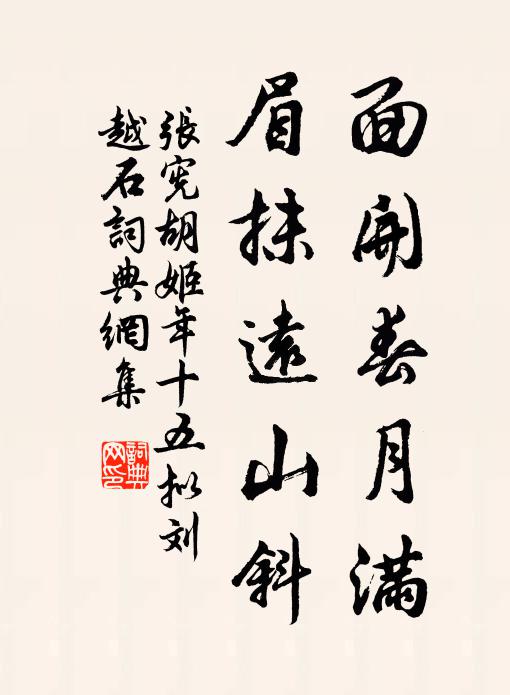 面開春月滿
眉抹遠山斜
張憲胡姬年十五拟刘
越石詞典網集
詞典
网印